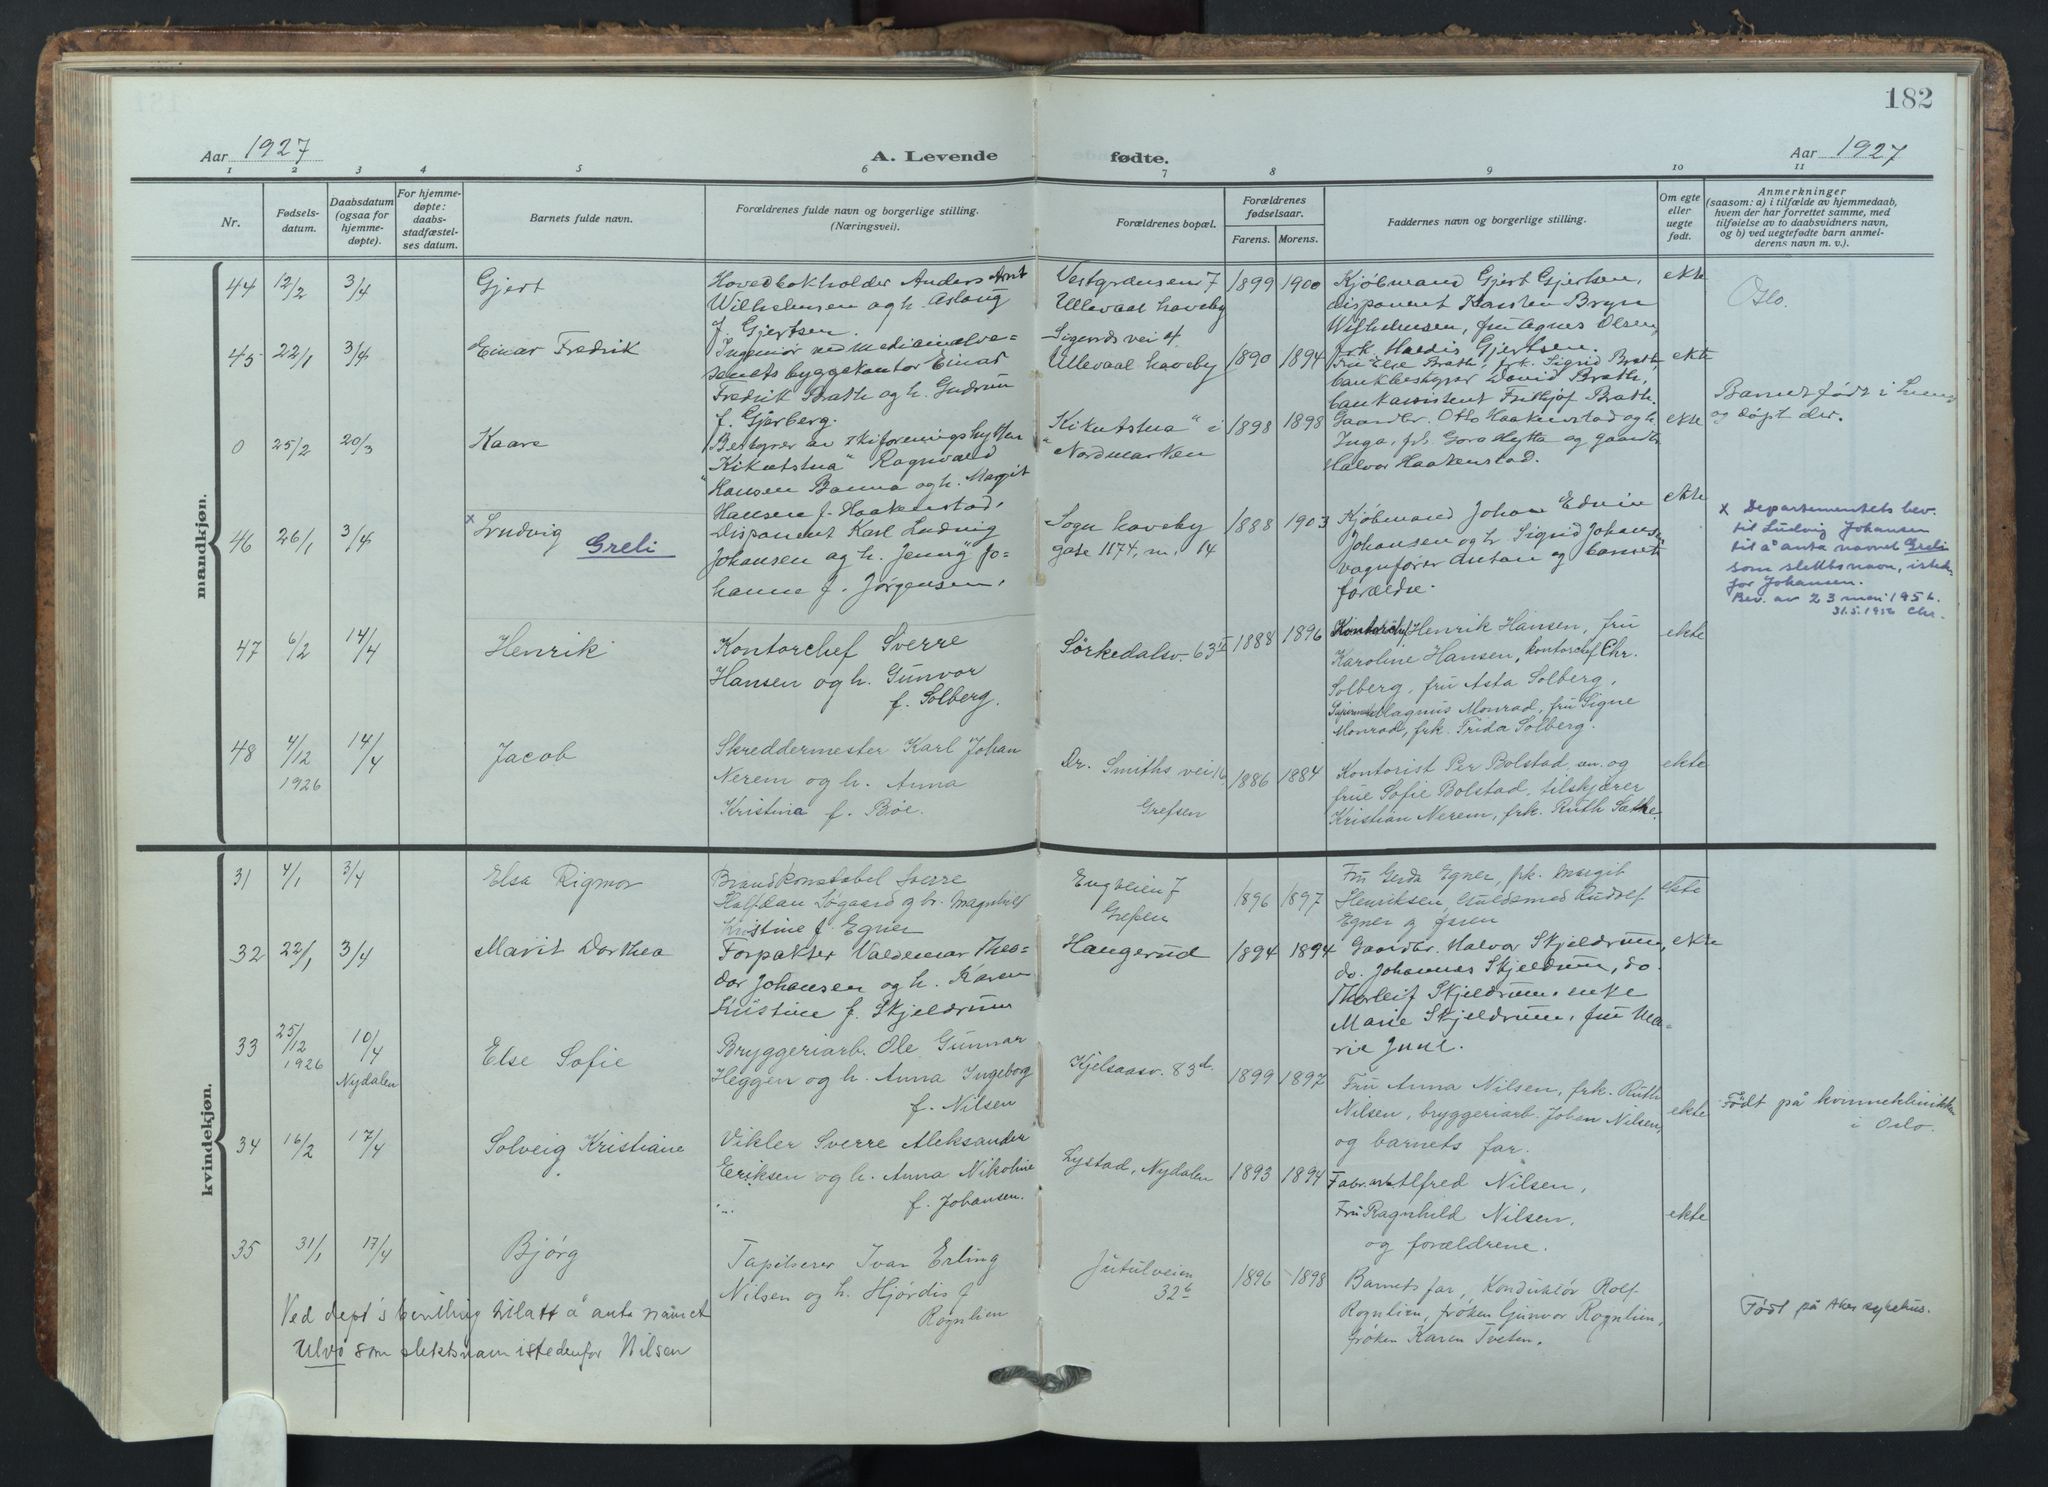 182
Aar 1927
A. Levende fødte.
Aar 1927
1 2 3 4 5 6 7 8 9 10 11
Nr.
Fødsels-
datum.
Daabsdatum
(ogsaa for
hjemme-
døpte).
For hjemme-
døpte:
daabs-
stadfæstel-
ses datum.
Barnets fulde navn.
Forældrenes fulde navn og borgerlige stilling.
(Næringsvei).
Forældrenes bopæl.
Forældrenes
fødselsaar.
Farens. Morens.
Faddernes navn og borgerlige stilling.
Om egte
eller
uegte
født.
Anmerkninger
(saasom: a) i tilfælde av hjemmedaab,
hvem der har forrettet samme, med
tilføielse av to daabsvidners navn,
og b) ved uegtefødte barn anmel-
derens navn m. v.).
mandkjøn.
44 12/2 3/4 Gjert
Hovedbokholder Anders Arnt
Wilhelmsen og h. Aslaug
f. Gjertsen.
Vestgrænsen 7
Ullevaal haveby
1899 1900
Kjøbmand Gjert Gjertsen,
disponent Karsten Bryn
Wilhelmsen, fru Agnes Olsen,
frk. Haldis Gjertsen.
ekte
Oslo.
45 22/1 3/4 Einar Fredrik
Ingeniør ved medicinalve-
senets byggekontor Einar
Fredrik Brath og h. Gudrun
f. Gjerberg.
Sigurds vei 4.
Ullevaal haveby
1890 1894
Fru Else Brath, frk. Sigrid Brath,
bankbestyrer David Brath,
bankassistent Fridtjof Brath.
ekte
0 25/2 20/3 Kaare
Bestyrer av skiforeningshytten
"Kikutstua" Ragnvald
Hansen Banna og h. Margit
Hansen f. Haakenstad.
"Kikutstua" i
Nordmarken
1898 1898
Gaardbr. Otto Haakenstad og h.
Inga, frk. Gora Hytta og gaardbr.
Halvor Haakenstad.
ekte
Barnet født i
og døpt der.
46 26/1 3/4 x Ludvig Greli
Disponent Karl Ludvig
Johansen og h. Jenny Jo-
hanne f. Jørgensen.
Sogn haveby
gate 1174, nr. 14
1888 1903
Kjøbmand Johan Edvin
Johansen og h. Sigrid Johansen,
vognfører Antan og barnets
forældre.
ekte
x Departementets bev.
til Ludvig Johansen
til å anta navnet Greli
som slektsnavn, isteden-
for Johansen.
Bev. av 23 mai 1956.
31.5.1956 Chr.
47 6/2 14/4 Henrik
Kontorchef Sverre
Hansen og h. Gunvor
f. Solberg.
Sörkedalsv. 63 II
1888 1896
Kontorchef Henrik Hansen, fru
Karoline Hansen, kontorchef Chr.
Solberg, fru Asta Solberg,
Magnus Monrad, fru Signe
Monrad, frk. Frida Solberg.
ekte
48 4/12 1926 14/4 Jacob
Skreddermester Karl Johan
Nerem og h. Anna
Kristine f. Bøe.
Dr. Smiths vei 16
Grefsen
1886 1884
Kontorist Per Bolstad, sen. og
frue Sofie Bolstad, tilskjærer
Kristian Nerem, frk. Ruth Sæthre.
ekte
kvindekjøn.
31 4/1 3/4 Elsa Rigmor
Brandkonstabel Sverre
Halfdan Søgaard og h. Magnhild
Kristine f. Egner
Engveien 7
Grefsen
1896 1897
Fru Gerda Egner, frk. Margit
Henriksen, Guldsmed Rudolf
Egner og faren
ekte
32 22/1 3/4 Marit Dorthea
Forpakter Valdemar Theo-
dor Johansen og h. Karen
Kristine f. Skjeldrum
Haugerud
1894 1894
Gaardbr. Halvor Skjeldrum,
do. Johannes Skjeldrum, do.
Thorleif Skjeldrum, enke
Marie Skjeldrum, fru Ma-
rie Juul.
ekte
33 25/12 1926 10/4 Nydalen Else Sofie
Bryggeriarb. Ole Gunnar
Heggen og h. Anna Ingeborg
f. Nilsen
Kjelsaasv. 83 d.
1899 1897
Fru Anna Nilsen, frk. Ruth
Nilsen, bryggeriarb. Johan Nilsen,
og barnets far.
ekte
Født på kvinneklinikken
i Oslo.
34 16/2 17/4 Solveig Kristiane
Vikler Sverre Aleksander
Eriksen og h. Anna Nikoline
f. Johansen.
Lystad, Nydalen
1893 1894
Fabr.arb. Alfred Nilsen,
Fru Ragnhild Nilsen,
og forældrene.
ekte
35 31/1 17/4 Bjørg
Tapetserer Ivan Erling
Nilsen og h. Hjørdis f
Rognlien
Jutulveien
32 b
1896 1898
Barnets far, Konduktør Rolf
Rognlien, frøken Gunvor Rognlien,
frøken Karen Tveten.
Født på Aker sykehus.
Ved dept's bevilling tillatt å anta navnet
Ulvö som slektsnavn istedenfor Nilsen